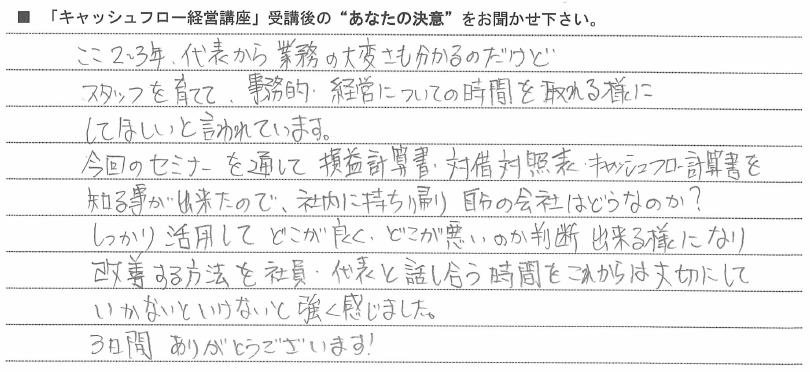 ■ 「キャッシュフロー経営講座」受講後の“あなたの決意”をお聞かせ下さい。
ここ2~3年、代表から業務の大変さも分かるのだけど
スタッフを育てて、事務的・経営についての時間を取れる様に
してほしいと言われています。
今回のセミナーを通して損益計算書・対借対照表・キャッシュフロー計算書を
知る事が出来たので、社内に持ち帰り自分の会社はどうなのか?
しっかり活用してどこが良く、どこが悪いのか判断出来る様になり
改善する方法を社員・代表と話し合う時間をこれからは大切にして
いかないといけないと強く感じました。
3日間ありがとうございます!